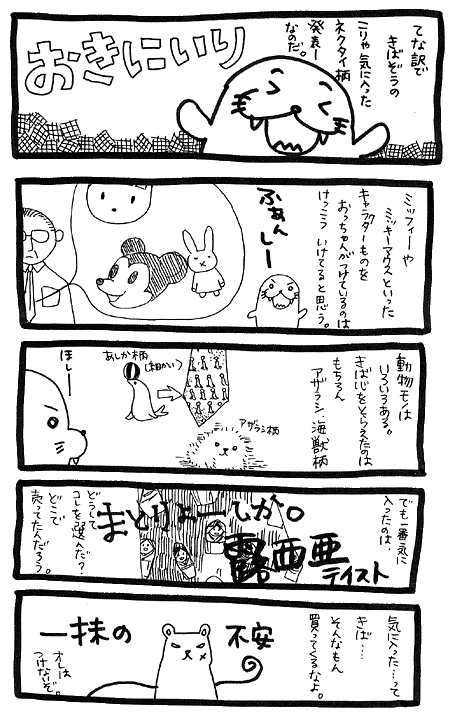 てな訳で
きばぞうの
こりゃ気に入った
ネクタイ柄
発表ー
なのだ。
おきにいり
ミッフィーや
ミッキーマウスといった
キャラクターものを
おっちゃんがつけているのは
けっこう いけてると思う。
ふぁんしー
動物モノは
いろいろある。
きば心をとらえたのは
もちろん
アザラシ、海獣柄
あしか柄
(細かい)
アザラシ柄
ほしー
でも一番気に
入ったのは、
まとりょーしか。
露西亜
テイスト
どうして
コレを選んだ?
どこで
売ってたんだろう。
気に入った…って
きば…
そんなもん
買ってくるなよ。
一抹の 不安
オレは
つけないぞ。